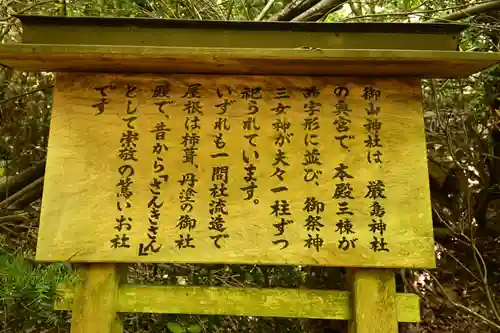 御山神社は、厳島神社
の奥宮で、本殿三棟が
品字形に並び、御祭神
三女神が夫々一柱ずつ
祀られています。
いずれも一間社流造で
屋根は杮葺、丹塗の御社
殿で、昔から「さんきさん」
として崇敬の篤いお社
です